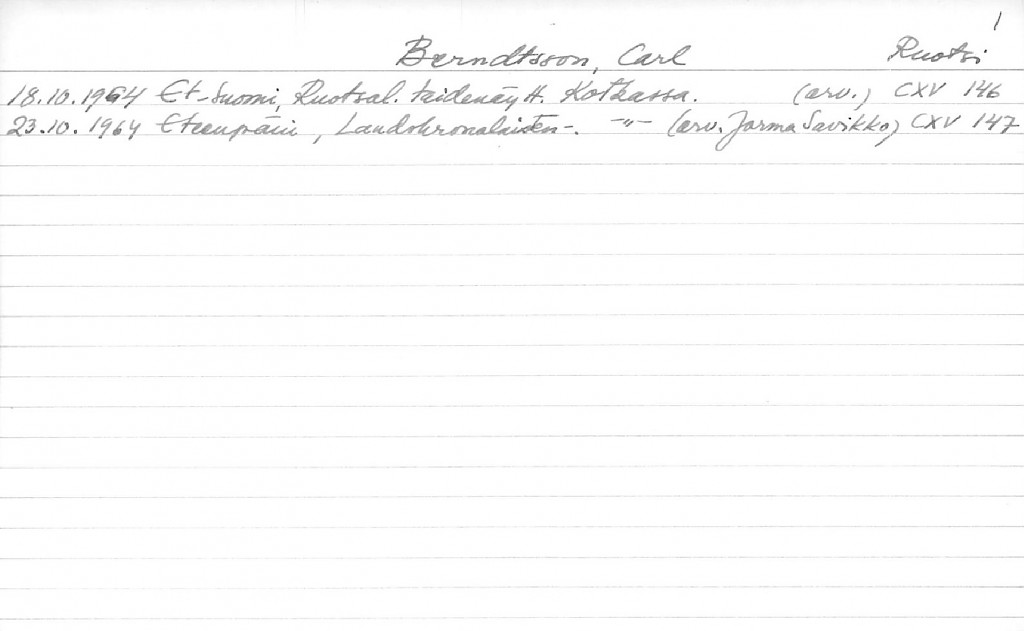 1
Berndtsson, Carl Ruotsi
18.10.1964 Et-Suomi, Ruotsal. taidenäytt. Kotkassa. (arv.) CXV 146
23.10.1964 Eteenpäin, Landskronalaisten -. -"- (arv. Jorma Savikko) CXV 147